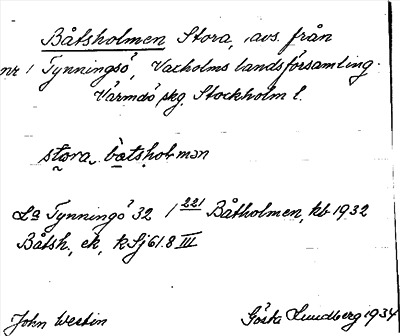 Båtsholmen Stora, avs. från
nr 1 Tynningsö, Vaxholms landsförsamling.
Värmdö skg. Stockholm l.
stora, båtsholmən
La Tynningö 32 1/221 Båtholmen, kb 1932
Båtsh, ek, kSj 61.8 III
John Westin Gösta Lundberg 1934